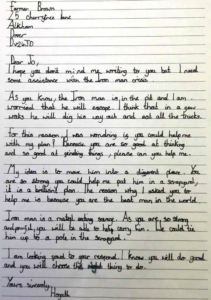 Farmer Brown
25 cherrytree lane
Alkham
Dover
Dear Jo,
I hope you don't mind my writing to you but I need
some assistance with the iron man crisis.
As you know, the Iron man is in the pit and I am
worried that he will escape. I think that in a few
weeks he will dig his way out and eat all the trucks.
For this reason I was wondering is you could help me
with my plan? Because you are so good at thinking
and so good at finding things, please can you help me.
My idea is to move him into a different place. You
are so strong you could help me put him in a scrapyard,
it is a brilliant plan. The reason why I asked you to
help me is because you are the best man in the world.
Iron man is a metal eating danger. As you are so strong
and you will be able to help carry him. We could tie
him up to a pole in the scrapyard.
I am looking for to your respond. I know you will do good
and you will choose the right thing to do.
Yours sincerely,